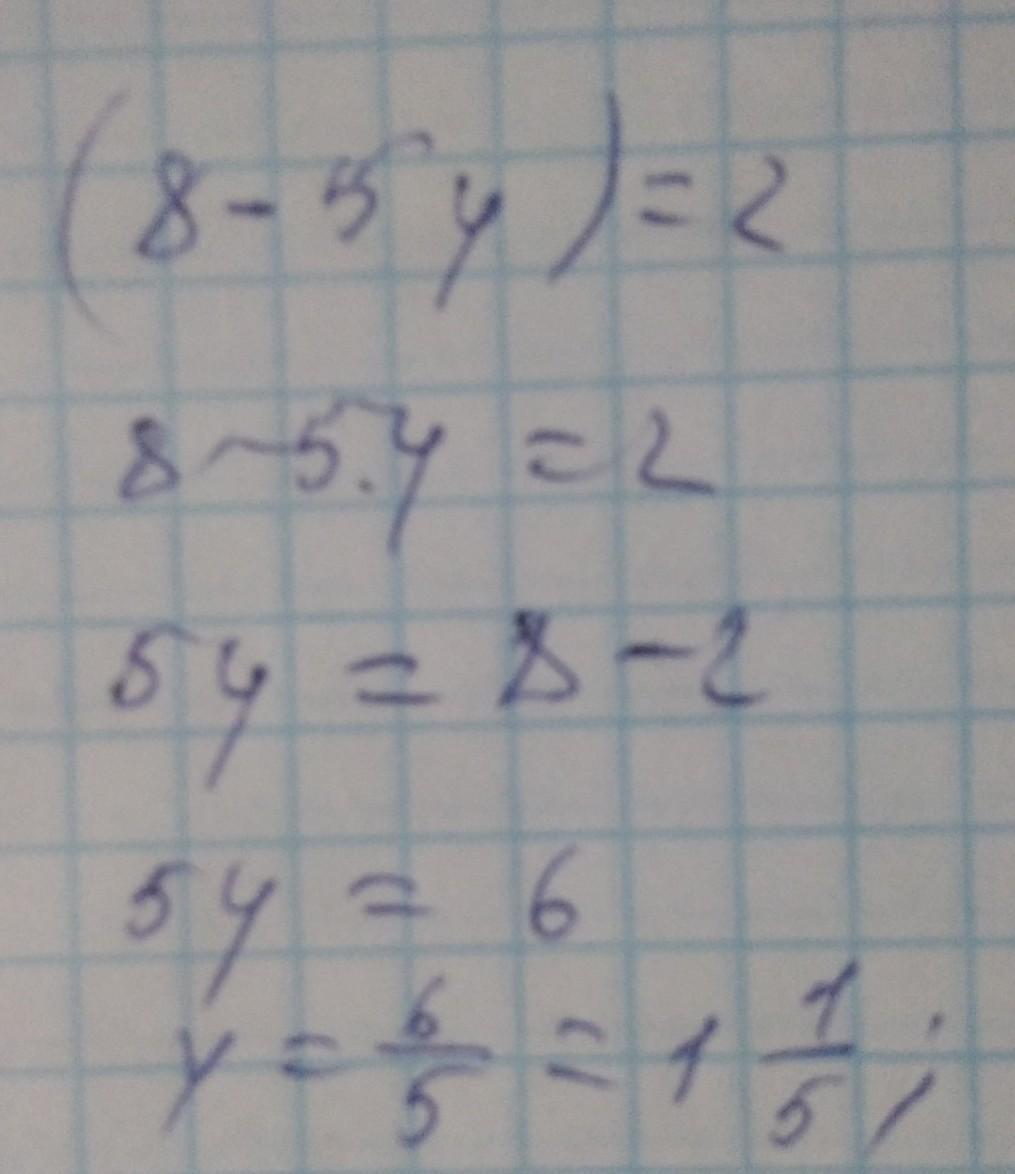 (8 - 5y) = 2
8 - 5.y = 2
5y = 8 - 2
5y = 6
y = 6/5 = 1 1/5;